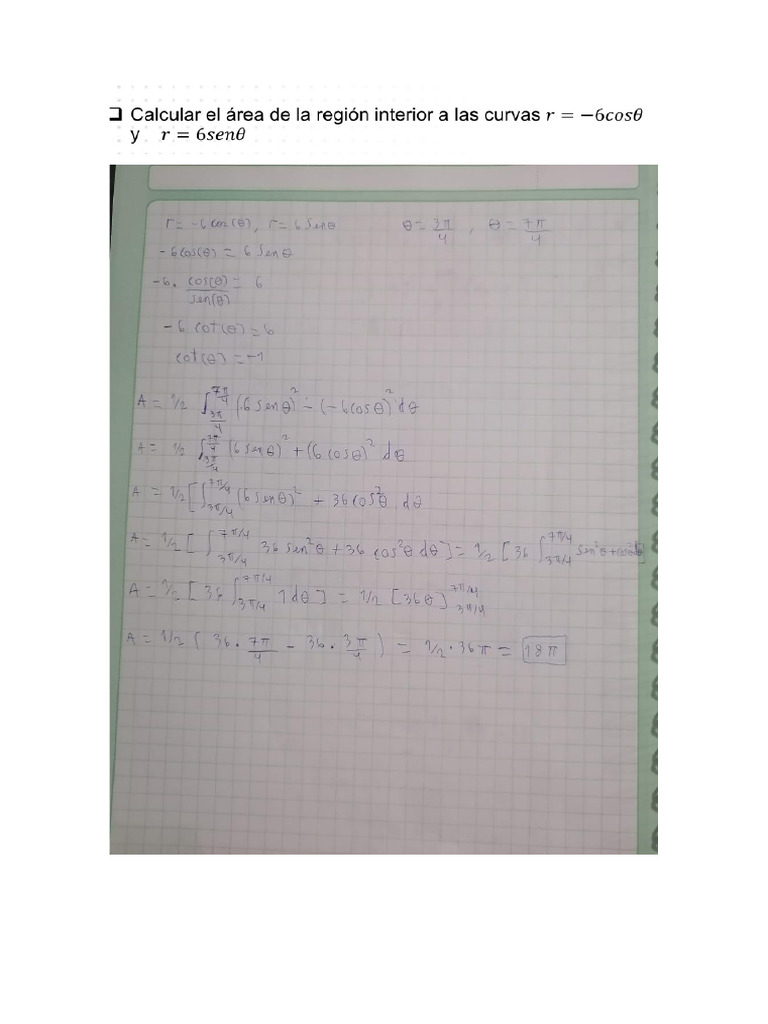 ❑ Calcular el área de la región interior a las curvas r = −6cosθ
y r = 6senθ
r = -6 cos(θ), r = 6 Senθ θ = 3π/4 , θ = 7π/4
-6cos(θ) = 6 Sen θ
-6 · cos(θ)/sen(θ) = 6
-6 cot(θ) = 6
cot(θ) = -1
A = 1/2 ∫_{3π/4}^{7π/4} (6 senθ)² - (-6cosθ)² dθ
A = 1/2 ∫_{3π/4}^{7π/4} (6 senθ)² + (6 cosθ)² dθ
A = 1/2 [ ∫_{3π/4}^{7π/4} (6senθ)² + 36cos²θ dθ
A = 1/2 [ ∫_{3π/4}^{7π/4} 36 sen²θ + 36 cos²θ dθ ] = 1/2 [ 36 ∫_{3π/4}^{7π/4} sen²θ + cos²θ ]
A = 1/2 [ 36 ∫_{3π/4}^{7π/4} 1 dθ ] = 1/2 [ 36θ ]_{3π/4}^{7π/4}
A = 1/2 ( 36 · 7π/4 - 36 · 3π/4 ) = 1/2 · 36π = 18π